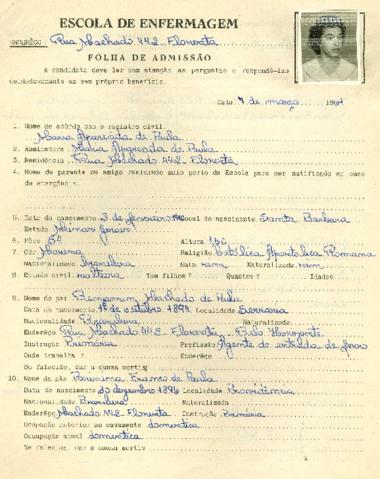 ESCOLA DE ENFERMAGEM
ENDERÊÇO Rua Machado 442 - Floresta
FOLHA DE ADMISSÃO
A candidata deve ler com atenção as perguntas e respondê-las
cuidadosamente em seu próprio benefício.
Data 7 de março
1. Nome de acôrdo com o registro civil
Maria Aparecida de Paula
2. Assinatura Maria Aparecida de Paula
3. Residência Rua Machado 442 - Floresta
4. Nome de parente ou amigo residindo mais perto da Escola para ser notificado em caso
de emergência.
5. Data do nascimento 3 de fevereiro Local do nascimento Santa Barbara
Estado Minas Gerais
6. Pêso 54 Altura
7. Côr Morena Religião Católica Apostolica Romana
Nacionalidade brasileira Nata sim Naturalizada
8. Estado civil solteira Tem filhos? Quantos? Idades
9. Nome do pai Machado de Paula
Data do nascimento de outubro Localidade
Nacionalidade Brasileira Naturalizado
Enderêço Rua Machado 442 - Floresta - Belo Horizonte
Instrução Primária Profissão Agente de estrada de ferro
Onde trabalha? Enderêço
Se falecido, dar a causa mortis
10. Nome da mãe Franco de Paula
Data do nascimento de dezembro 1896 Localidade
Nacionalidade Brasileira Naturalizada
Enderêço Machado 442 - Floresta Instrução Primária
Ocupação anterior ao casamento domestica
Ocupação atual domestica
Se falecida, dar a causa mortis